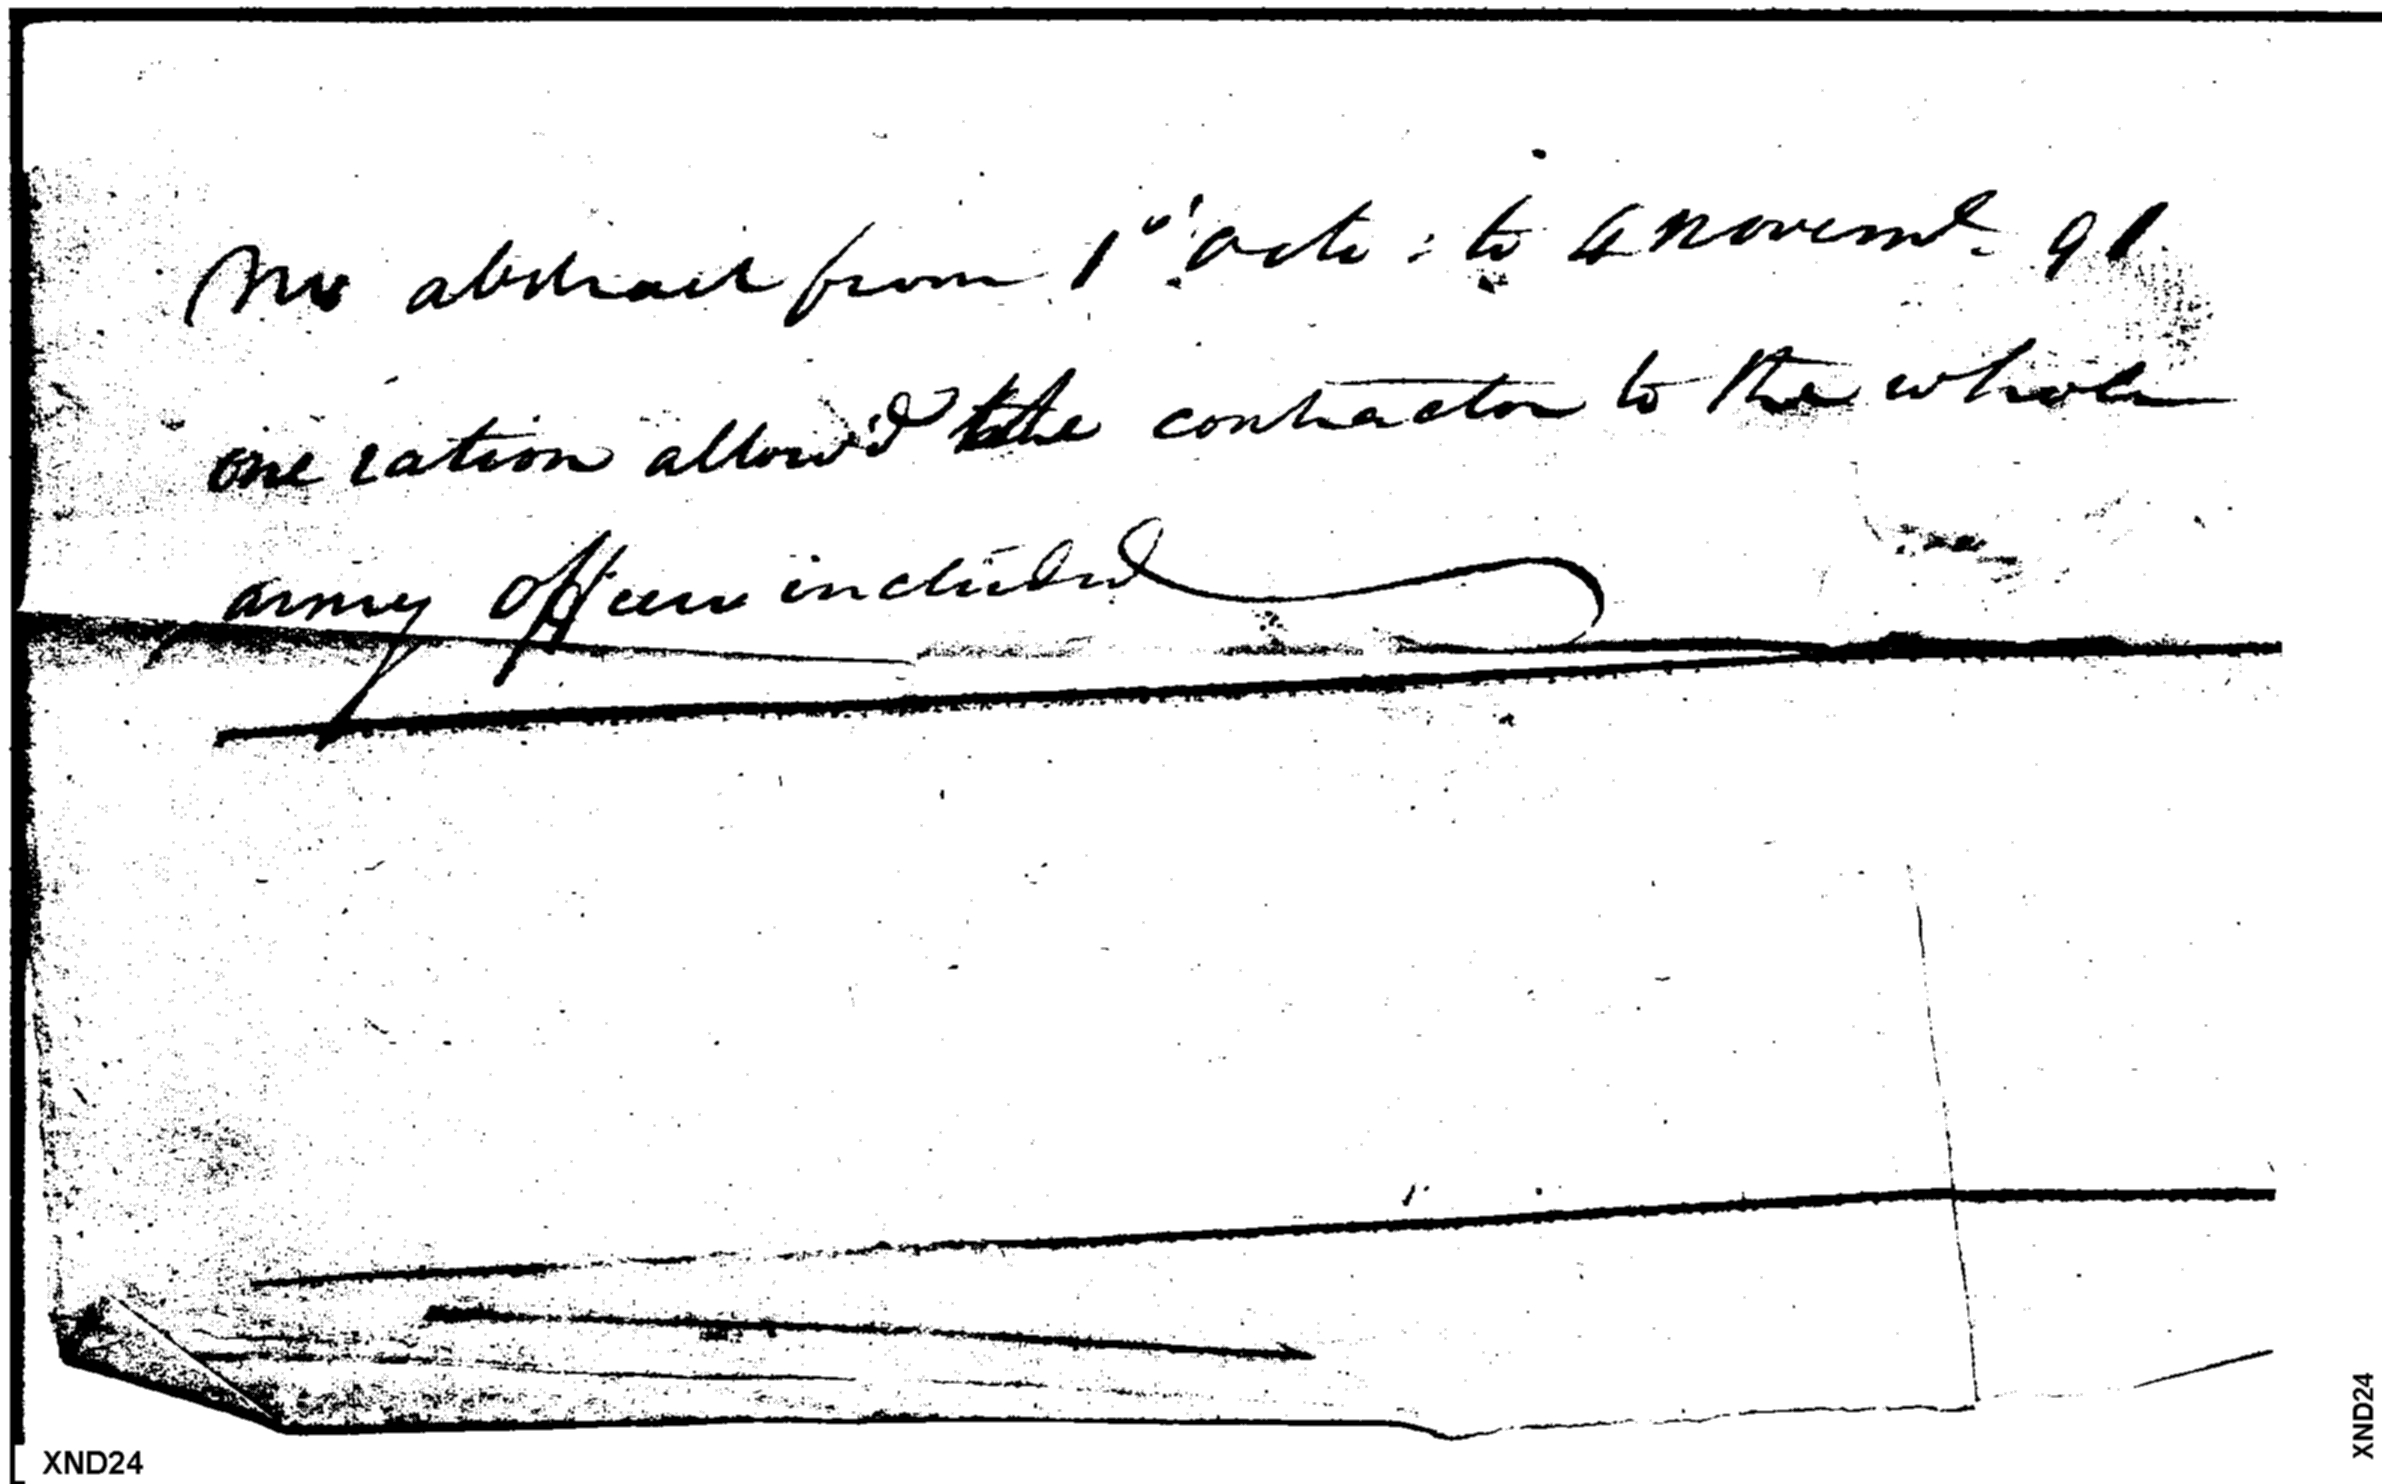 abstract from 1st Octo : to 4 Novemr. 91
one ration allow'd the contractor to the whole
army officers included
XND24
XND24